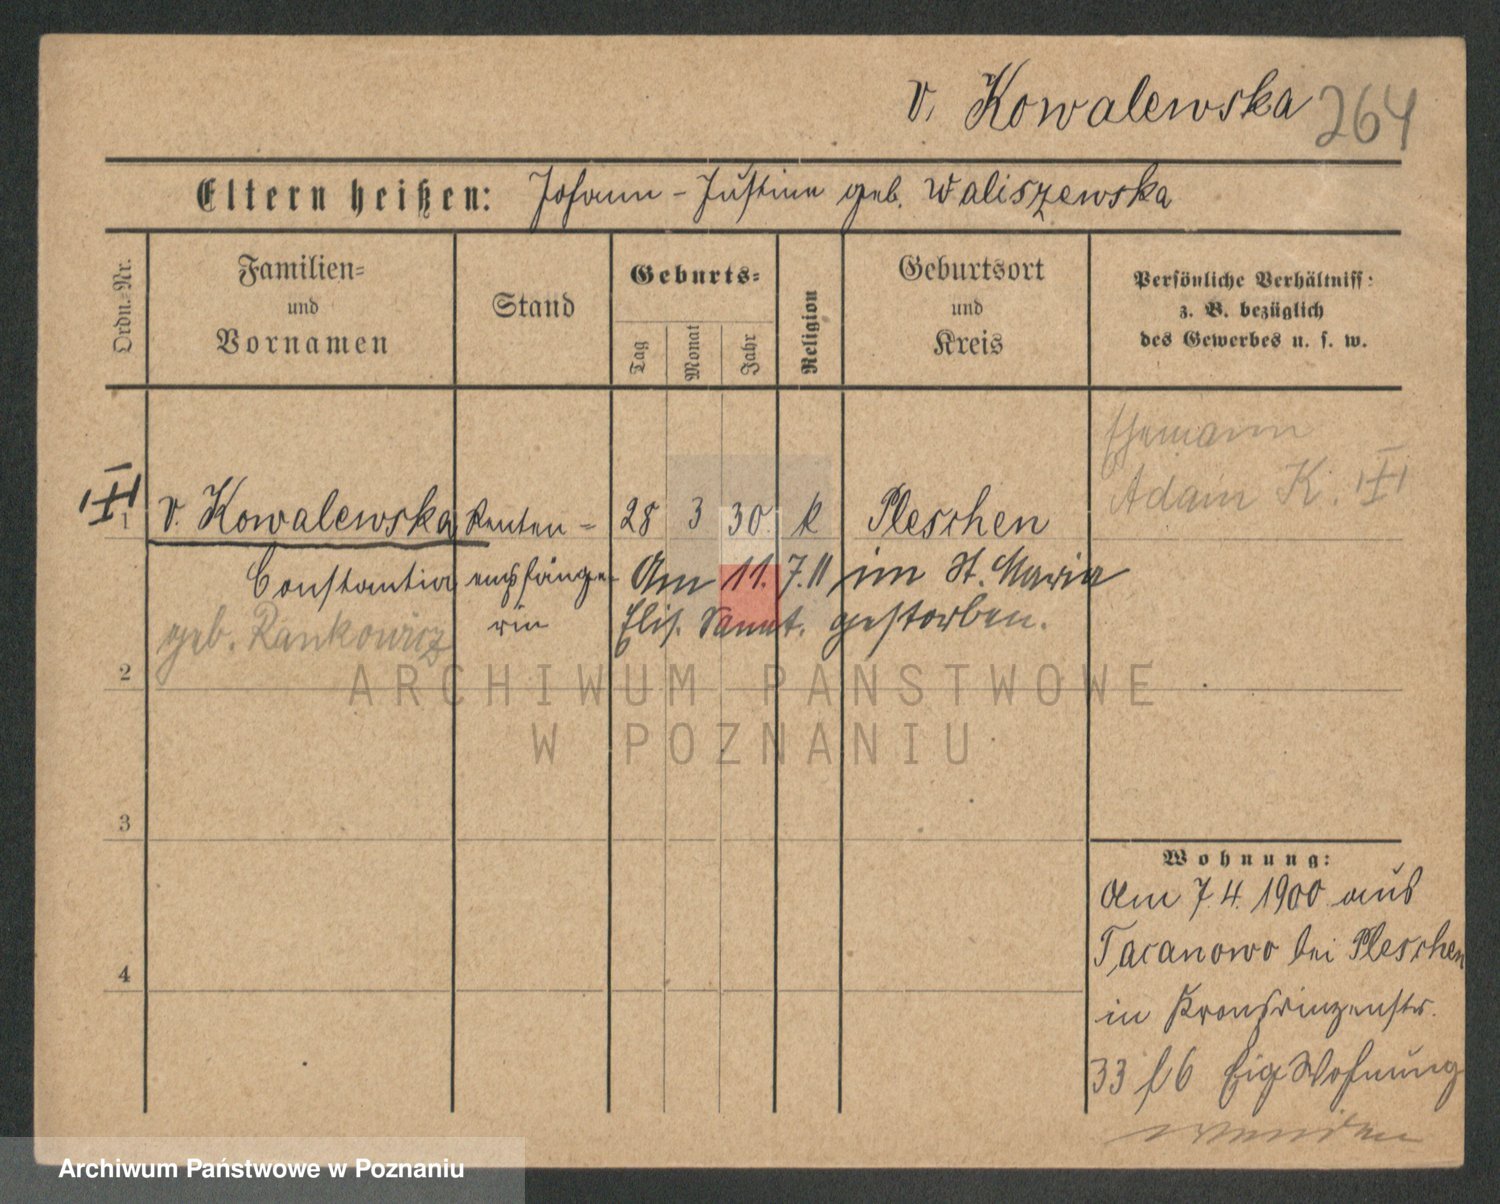 v. Kowalewska 264
Eltern heißen: Johann - Justine geb. Waliszewska
Ordn.-Nr.
Familien=
und
Vornamen
Stand
Geburts=
Tag
Monat
Jahr
Religion
Geburtsort
und
Kreis
Persönliche Verhältniss:
z. B. bezüglich
des Gewerbes u. s. w.
Ehemann
Adam K.
1 v. Kowalewska Renten= 28 3 30. k Pleschen
Constantia empfänge- Am 11. 7. 11 im St. Maria
geb. Rankowicz rin Elis. gestorben.
2
3
4
ARCHIWUM PAŃSTWOWE
W POZNANIU
Wohnung:
Am 7. 4. 1900 aus
Tacanowo bei Pleschen
in Kronprinzenstr.
33 6 Eig Wohnung
wenden
Archiwum Państwowe w Poznaniu